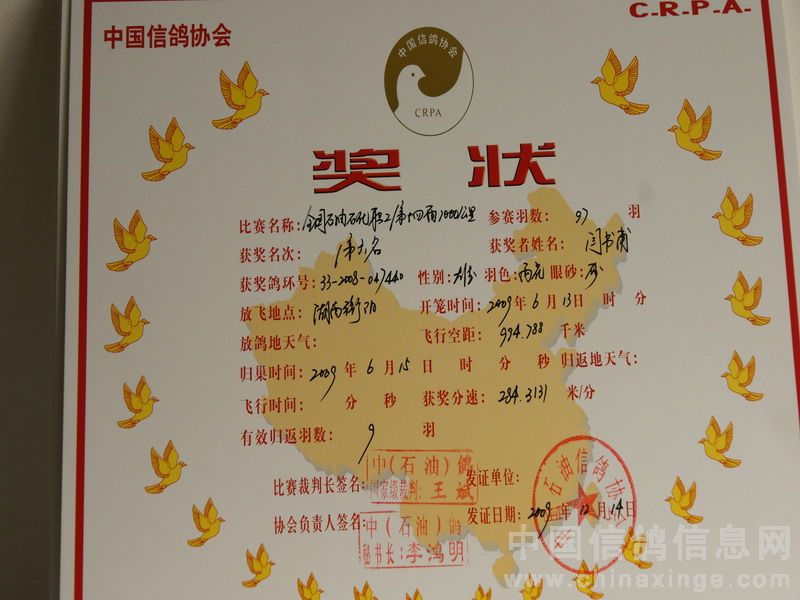 C-R-P-A-
中国信鸽协会
中国信鸽协会
CRPA
奖状
比赛名称: 全国石油石化职工第十四届1000公里 参赛羽数: 97 羽
获奖名次: 第六名 获奖者姓名: 闫书甫
获奖鸽环号: 33-2008-047440 性别: 雄 羽色: 雨花 眼砂: 砂
放飞地点: 湖南衡阳 开笼时间: 2009 年 6 月 13 日 时 分
放鸽地天气: 飞行空距: 994.788 千米
归巢时间: 2009 年 6 月 15 日 时 分 秒 归返地天气:
飞行时间: 分 秒 获奖分速: 284.3131 米/分
有效归返羽数: 9 羽
比赛裁判长签名: 中(石油)鸽 国家级裁判: 王斌 发证单位: 石油信鸽协会
协会负责人签名: 中(石油)鸽 秘书长: 李鸿明 发证日期: 2009 年 12 月 14 日
中国信鸽信息网
www.chinaxinge.com